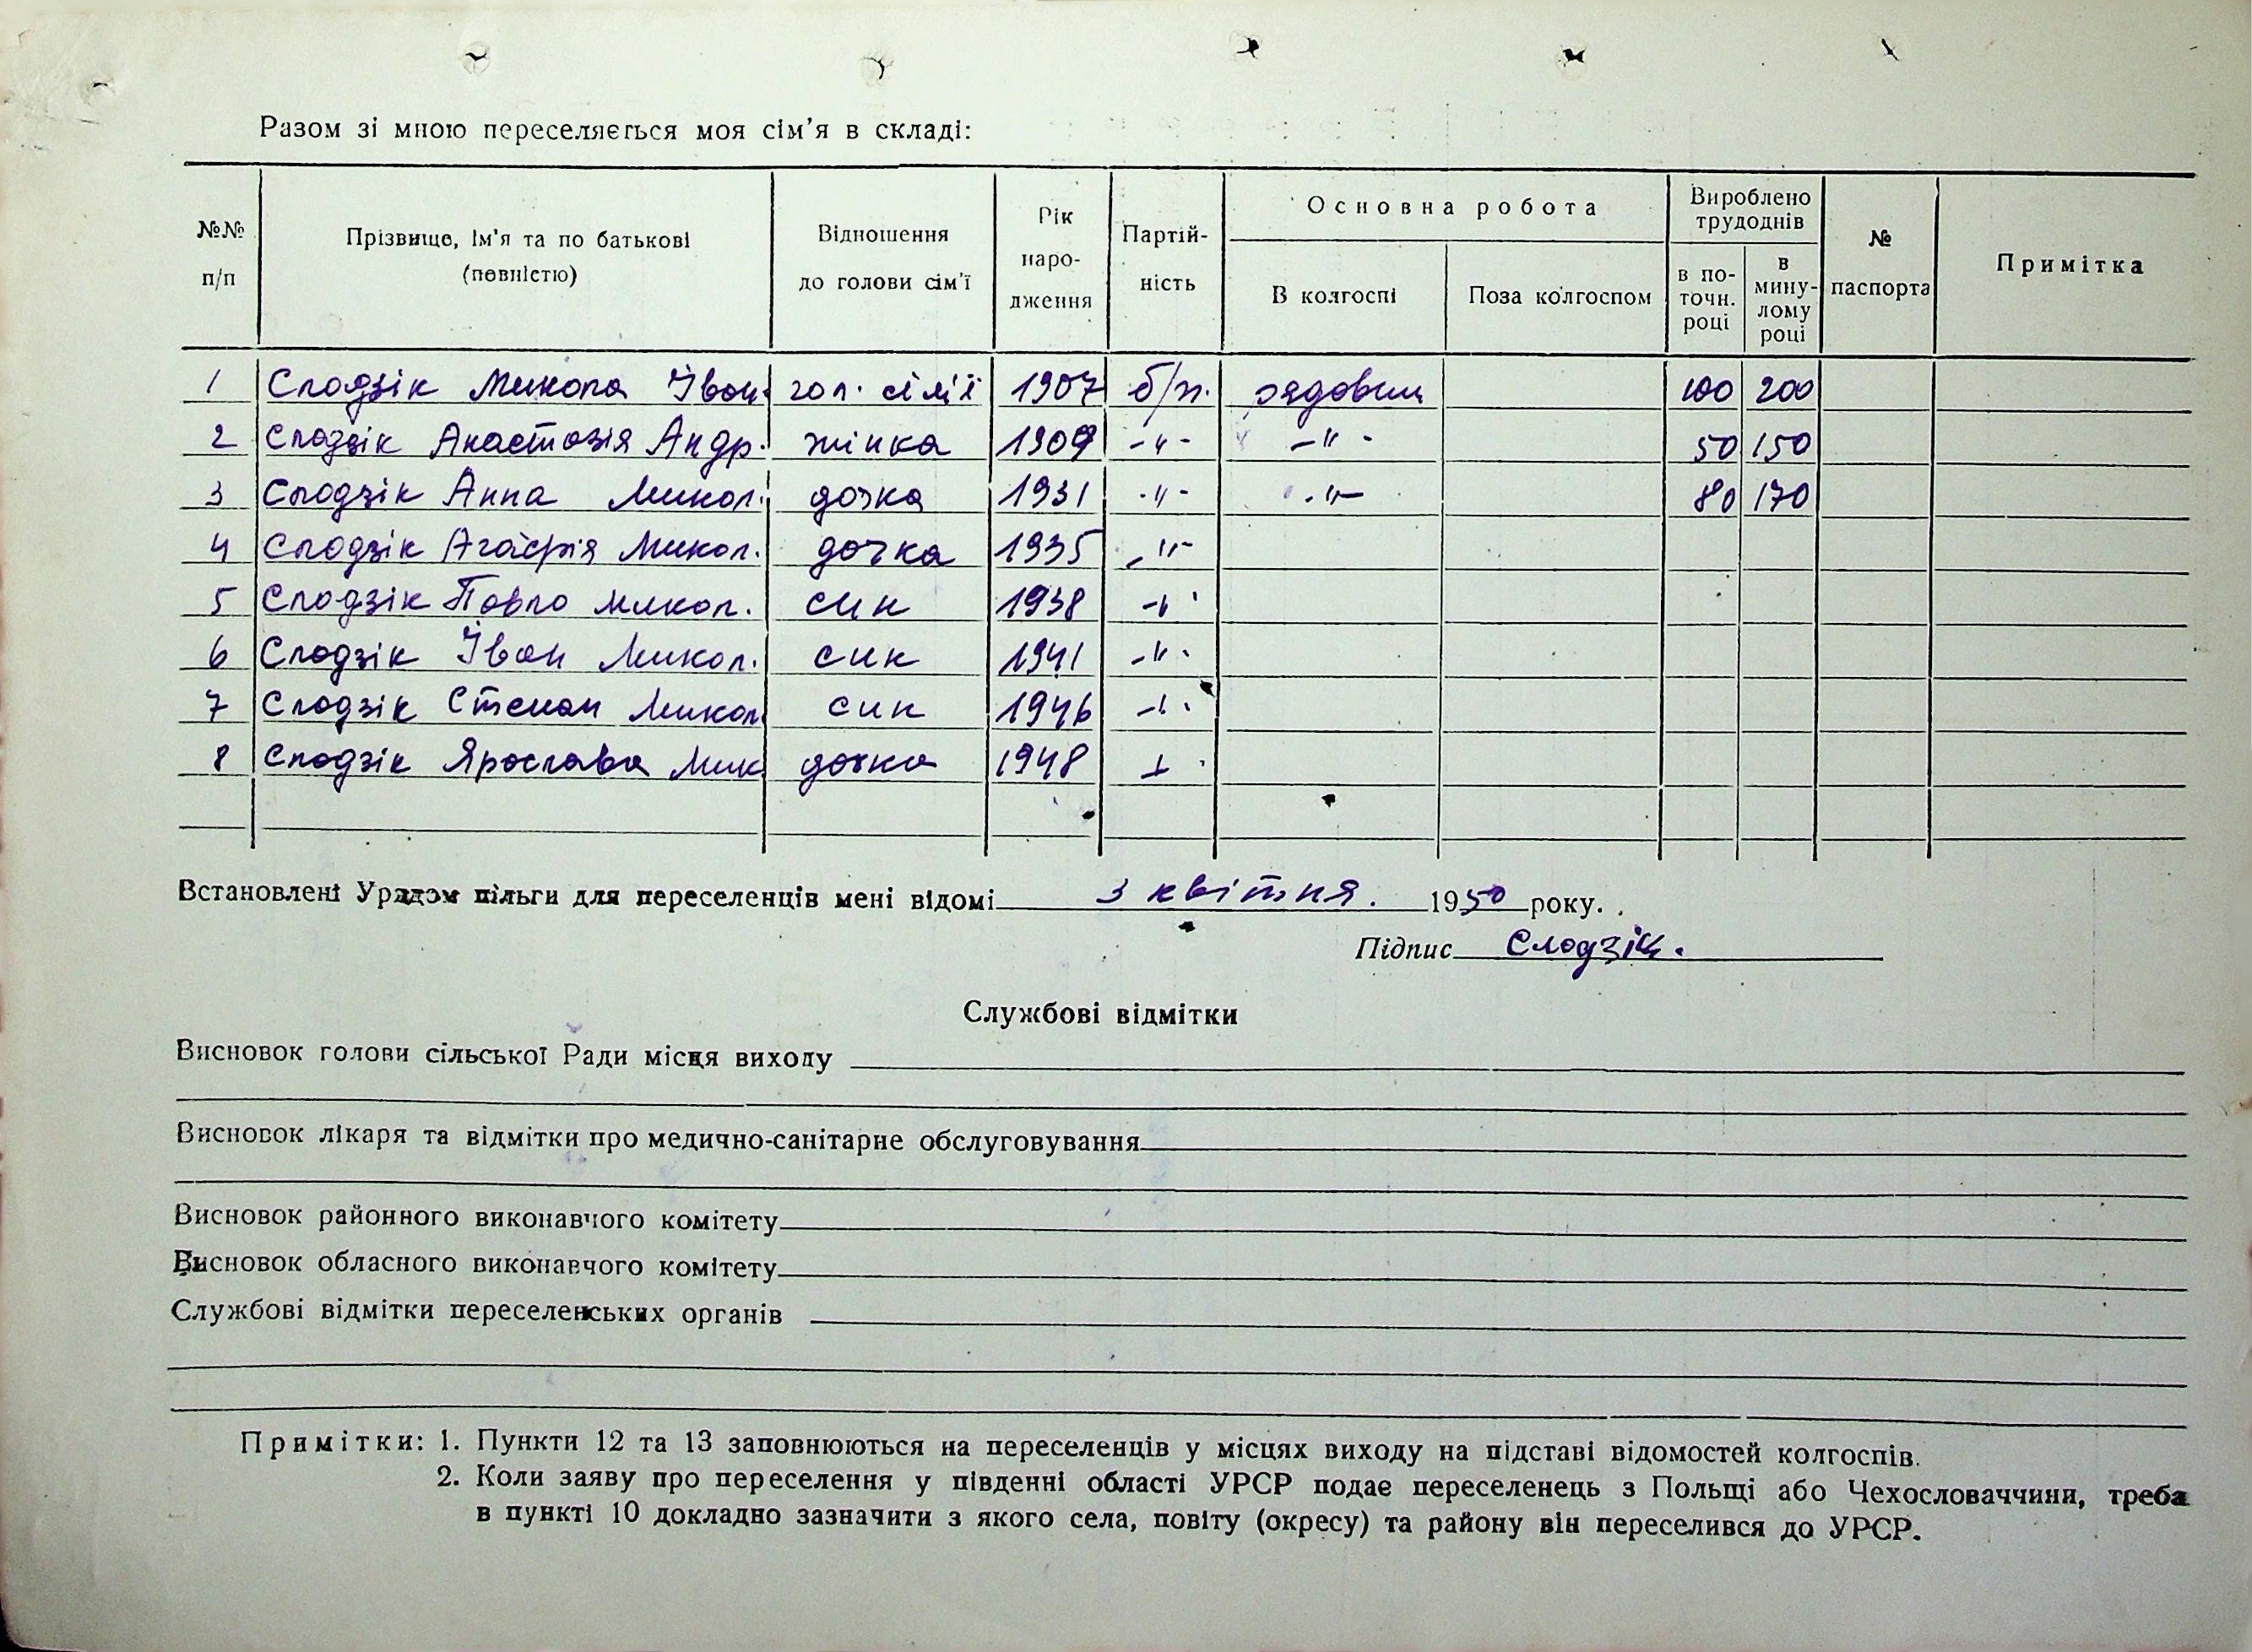 Разом зі мною переселяється моя сім'я в складі:
№№ п/п Прізвище, ім'я та по батькові (повністю) Відношення до голови сім'ї Рік народження Партійність Основна робота В колгоспі Поза колгоспом Вироблено трудоднів в поточн. році в минулому році № паспорта Примітка
1 Слодзік Микола Іван. гол. сім'ї 1907 б/п. рядовий 100 200
2 Слодзік Анастазія Андр. жінка 1909 -"- -"- 50 150
3 Слодзік Анна Микол. дочка 1931 -"- -"- 80 170
4 Слодзік Агафія Микол. дочка 1935 -"-
5 Слодзік Павло Микол. син 1938 -"-
6 Слодзік Іван Микол. син 1941 -"-
7 Слодзік Степан Микол син 1946 -"-
8 Слодзік Ярослава Мик дочка 1948 -"-
Встановлені Урядом пільги для переселенців мені відомі 3 квітня. 1950 року.
Підпис Слодзік.
Службові відмітки
Висновок голови сільської Ради місця виходу
Висновок лікаря та відмітки про медично-санітарне обслуговування
Висновок районного виконавчого комітету
Висновок обласного виконавчого комітету
Службові відмітки переселенських органів
Примітки: 1. Пункти 12 та 13 заповнюються на переселенців у місцях виходу на підставі відомостей колгоспів.
2. Коли заяву про переселення у південні області УРСР подає переселенець з Польщі або Чехословаччини, треба
в пункті 10 докладно зазначити з якого села, повіту (окресу) та району він переселився до УРСР.